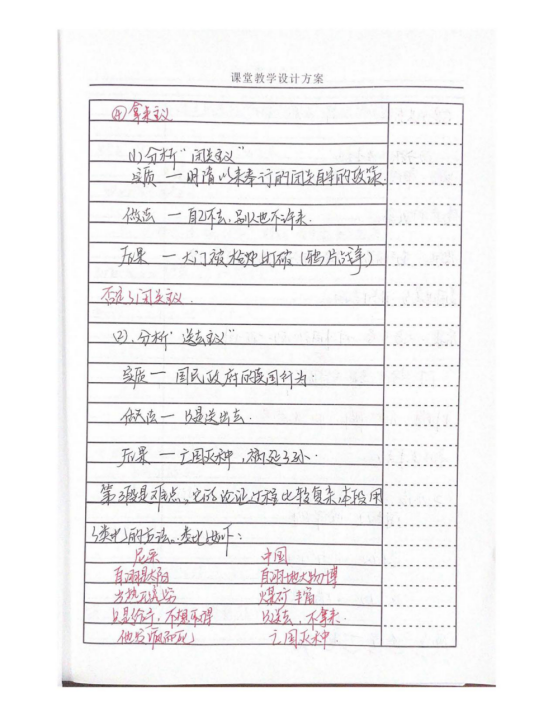 课堂教学设计方案
④拿来主义
(1)分析"闭关主义"
实质 — 明清以来奉行的闭关自守的政策
做法 — 自己不去,别人也不许来.
后果 — 大门被枪炮打破(鸦片战争)
否定了闭关主义.
(2).分析"送去主义"
实质 — 国民政府的卖国行为.
做法 — 只是送出去.
后果 — 亡国灭种,祸延子孙.
第3段是难点,它的论证过程比较复杂,本段用
了类比的方法。类比如下:
尼采 中国
自诩是太阳 自诩地大物博
光热无穷 煤矿丰富
只是给予,不想取得 只送去,不拿来.
他发疯而死 亡国灭种